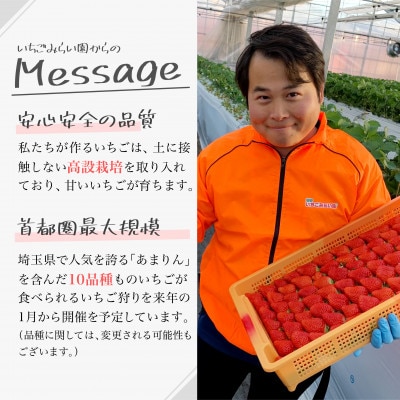 いちごみらい園からの
Message
安心安全の品質
私たちが作るいちごは、土に接
触しない高設栽培を取り入れ
ており、甘いいちごが育ちます。
首都圏最大規模
埼玉県で人気を誇る「あまりん」
を含んだ10品種ものいちごが
食べられるいちご狩りを来年の
1月から開催を予定しています。
(品種に関しては、変更される可能性も
ございます。)